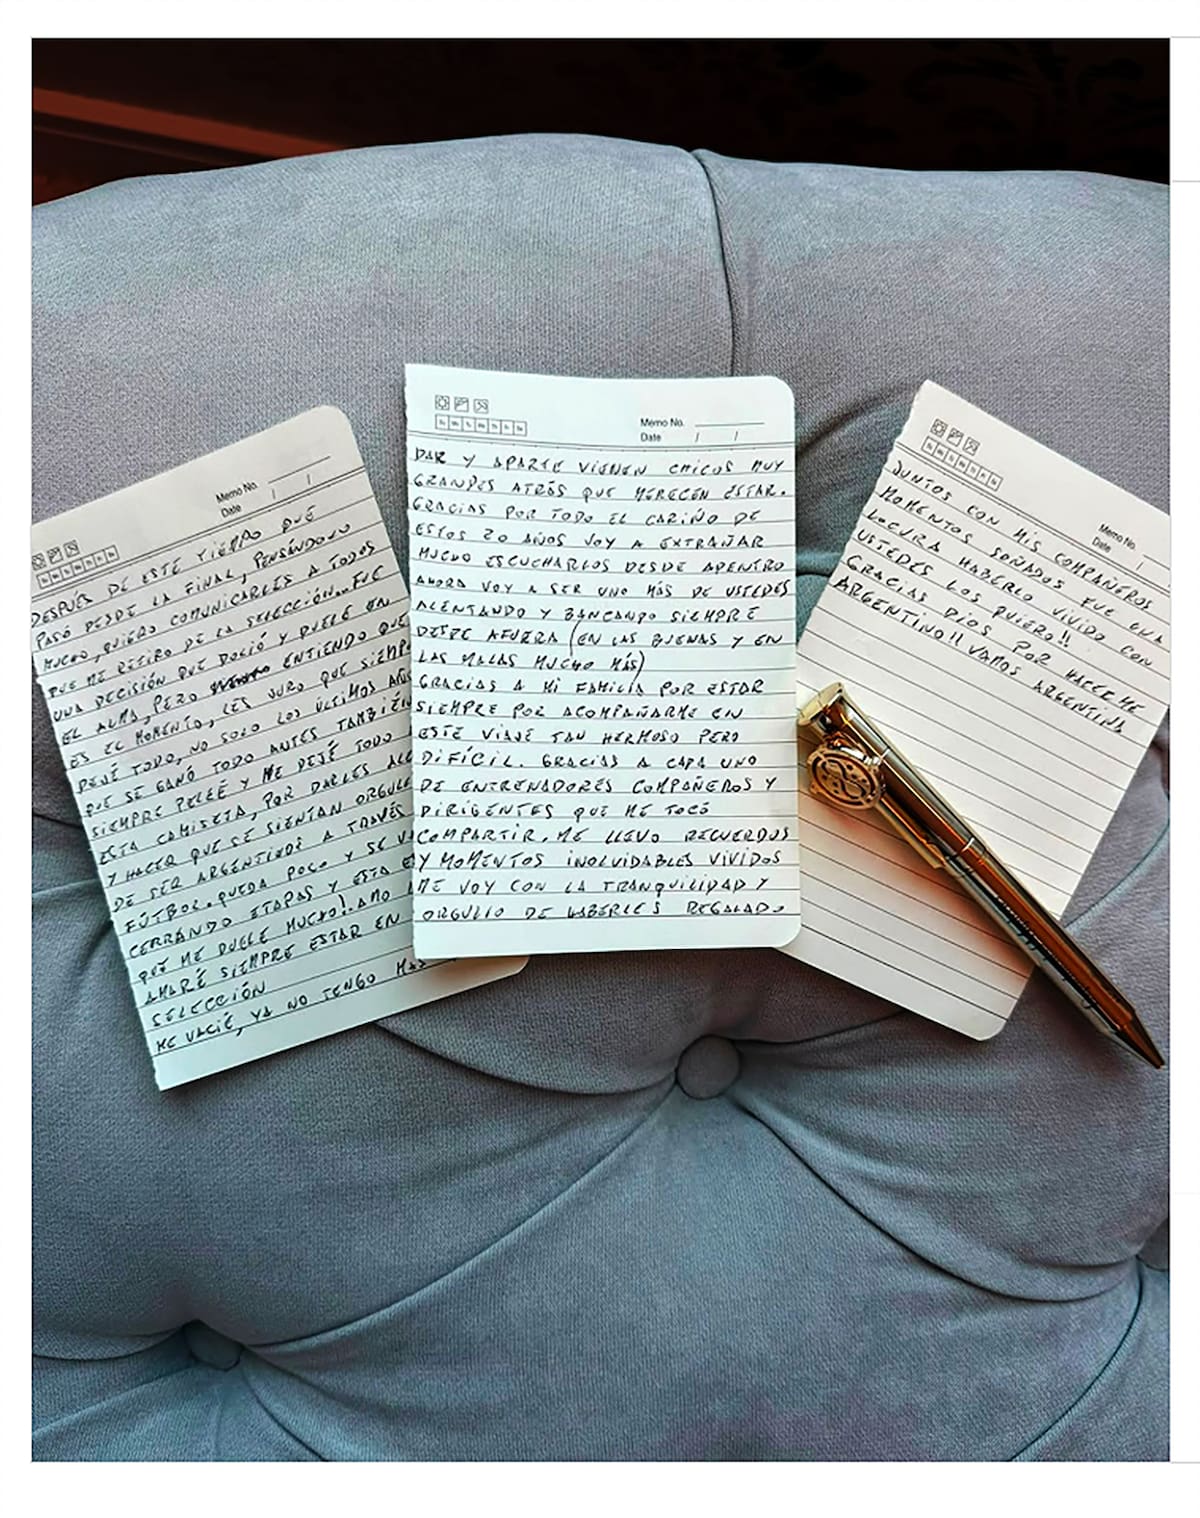 Memo No.
Date / /
DESPUÉS DE ESTE TIEMPO QUE
PASÓ DESDE LA FINAL, PENSÁNDOLO
MUCHO, QUIERO COMUNICARLES A TODOS
QUE ME RETIRO DE LA SELECCIÓN... FUE
UNA DECISIÓN QUE DOLIÓ Y DUELE EN
EL ALMA, PERO ENTIENDO QUE
ES EL MOMENTO, LES JURO QUE SIEMP
DEJÉ TODO, NO SOLO LOS ÚLTIMOS AÑOS
QUE SE GANÓ TODO ANTES TAMBIÉN
SIEMPRE PELEÉ Y ME DEJÉ TODO
ESTA CAMISETA, POR DARLES ALE
Y HACER QUE SE SIENTAN ORGULL
DE SER ARGENTINOS A TRAVÉS
FÚTBOL. QUEDA POCO Y SE VA
CERRANDO ETAPAS Y ESTA E
QUE ME DUELE MUCHO!. AMO
AMARÉ SIEMPRE ESTAR EN
SELECCIÓN
ME VACIÉ, YA NO TENGO MÁS
Memo No.
Date / /
DAR Y APARTE VIENEN CHICOS MUY
GRANDES ATRÁS QUE MERECEN ESTAR.
GRACIAS POR TODO EL CARIÑO DE
ESTOS 20 AÑOS VOY A EXTRAÑAR
MUCHO ESCUCHARLOS DESDE ADENTRO
AHORA VOY A SER UNO MÁS DE USTEDES
ALENTANDO Y BANCANDO SIEMPRE
DESDE AFUERA (EN LAS BUENAS Y EN
LAS MALAS MUCHO MÁS)
GRACIAS A MI FAMILIA POR ESTAR
SIEMPRE POR ACOMPAÑARME EN
ESTE VIAJE TAN HERMOSO PERO
DIFÍCIL. GRACIAS A CADA UNO
DE ENTRENADORES COMPAÑEROS Y
DIRIGENTES QUE ME TOCÓ
COMPARTIR. ME LLEVO RECUERDOS
Y MOMENTOS INOLVIDABLES VIVIDOS
ME VOY CON LA TRANQUILIDAD Y
ORGULLO DE HABERLES REGALADO
Memo No.
Date / /
JUNTOS CON MIS COMPAÑEROS
MOMENTOS SOÑADOS FUE UNA
LOCURA HABERLO VIVIDO CON
USTEDES LOS QUIERO!!
GRACIAS DIOS POR HACERME
ARGENTINO!! VAMOS ARGENTINA